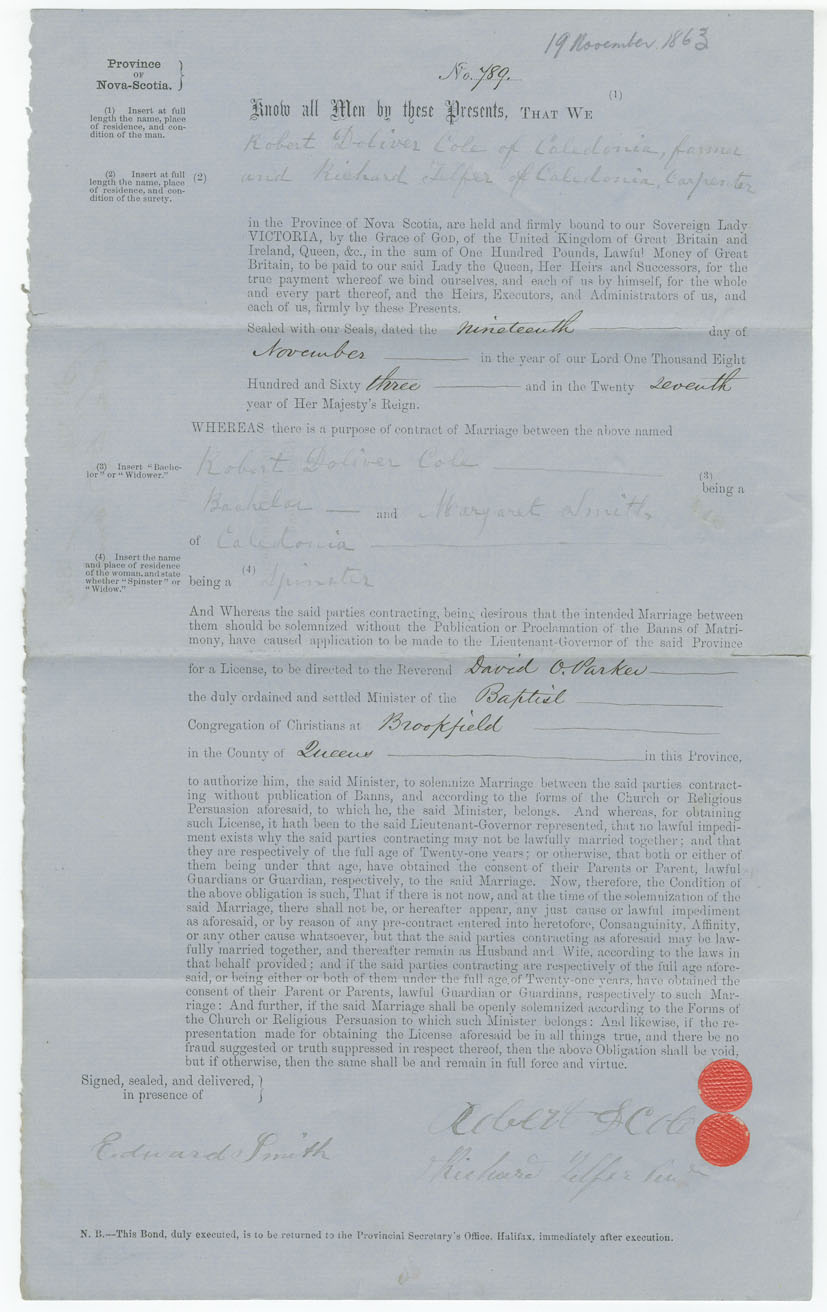 19 November 1863
Province
OF
Nova-Scotia.
No. 789.
(1) Insert at full
length the name, place
of residence, and con-
dition of the man.
Know all Men by these Presents, THAT WE (1)
Robert Doliver Cole of Caledonia, farmer
(2) Insert at full
length the name, place
of residence, and con-
dition of the surety.
(2) and Richard Telfer of Caledonia, Carpenter
in the Province of Nova Scotia, are held and firmly bound to our Sovereign Lady
VICTORIA, by the Grace of GOD, of the United Kingdom of Great Britain and
Ireland, Queen, &c., in the sum of One Hundred Pounds, Lawful Money of Great
Britain, to be paid to our said Lady the Queen, Her Heirs and Successors, for the
true payment whereof we bind ourselves, and each of us by himself, for the whole
and every part thereof, and the Heirs, Executors, and Administrators of us, and
each of us, firmly by these Presents.
Sealed with our Seals, dated the nineteenth day of
November in the year of our Lord One Thousand Eight
Hundred and Sixty three and in the Twenty seventh
year of Her Majesty's Reign.
WHEREAS there is a purpose of contract of Marriage between the above named
(3) Insert "Bache-
lor" or "Widower."
Robert Doliver Cole (3)
being a
Bachelor and Margaret Smith
of Caledonia
(4) Insert the name
and place of residence
of the woman, and state
whether "Spinster" or
"Widow."
being a (4) Spinster
And Whereas the said parties contracting, being desirous that the intended Marriage between
them should be solemnized without the Publication or Proclamation of the Banns of Matri-
mony, have caused application to be made to the Lieutenant-Governor of the said Province
for a License, to be directed to the Reverend David O. Parker
the duly ordained and settled Minister of the Baptist
Congregation of Christians at Brookfield
in the County of Queens in this Province,
to authorize him, the said Minister, to solemnize Marriage between the said parties contract-
ing without publication of Banns, and according to the forms of the Church or Religious
Persuasion aforesaid, to which he, the said Minister, belongs. And whereas, for obtaining
such License, it hath been to the said Lieutenant-Governor represented, that no lawful impedi-
ment exists why the said parties contracting may not be lawfully married together; and that
they are respectively of the full age of Twenty-one years; or otherwise, that both or either of
them being under that age, have obtained the consent of their Parents or Parent, lawful
Guardians or Guardian, respectively, to the said Marriage. Now, therefore, the Condition of
the above obligation is such, That if there is not now, and at the time of the solemnization of the
said Marriage, there shall not be, or hereafter appear, any just cause or lawful impediment
as aforesaid, or by reason of any pre-contract entered into heretofore, Consanguinity, Affinity,
or any other cause whatsoever, but that the said parties contracting as aforesaid may be law-
fully married together, and thereafter remain as Husband and Wife, according to the laws in
that behalf provided; and if the said parties contracting are respectively of the full age afore-
said, or being either or both of them under the full age, of Twenty-one years, have obtained the
consent of their Parent or Parents, lawful Guardian or Guardians, respectively to such Mar-
riage: And further, if the said Marriage shall be openly solemnized according to the Forms of
the Church or Religious Persuasion to which such Minister belongs: And likewise, if the re-
presentation made for obtaining the License aforesaid be in all things true, and there be no
fraud suggested or truth suppressed in respect thereof, then the above Obligation shall be void,
but if otherwise, then the same shall be and remain in full force and virtue.
Signed, sealed, and delivered,
in presence of
Robert D Cole
Edward Smith
Richard Telfer
N. B.—This Bond, duly executed, is to be returned to the Provincial Secretary's Office, Halifax, immediately after execution.